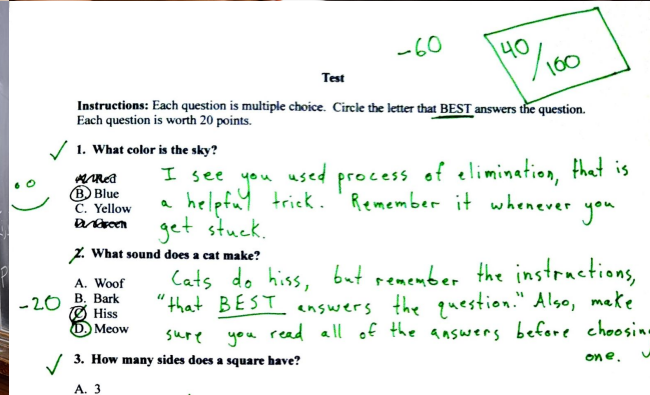 -60
40/100
Test
Instructions: Each question is multiple choice. Circle the letter that BEST answers the question.
Each question is worth 20 points.
1. What color is the sky?
I see you used process of elimination, that is
B. Blue
C. Yellow
a helpful trick. Remember it whenever you
get stuck.
2. What sound does a cat make?
A. Woof
Cats do hiss, but remember the instructions,
-20
B. Bark
"that BEST answers the question." Also, make
Hiss
D. Meow
sure you read all of the answers before choosing
one.
3. How many sides does a square have?
A. 3